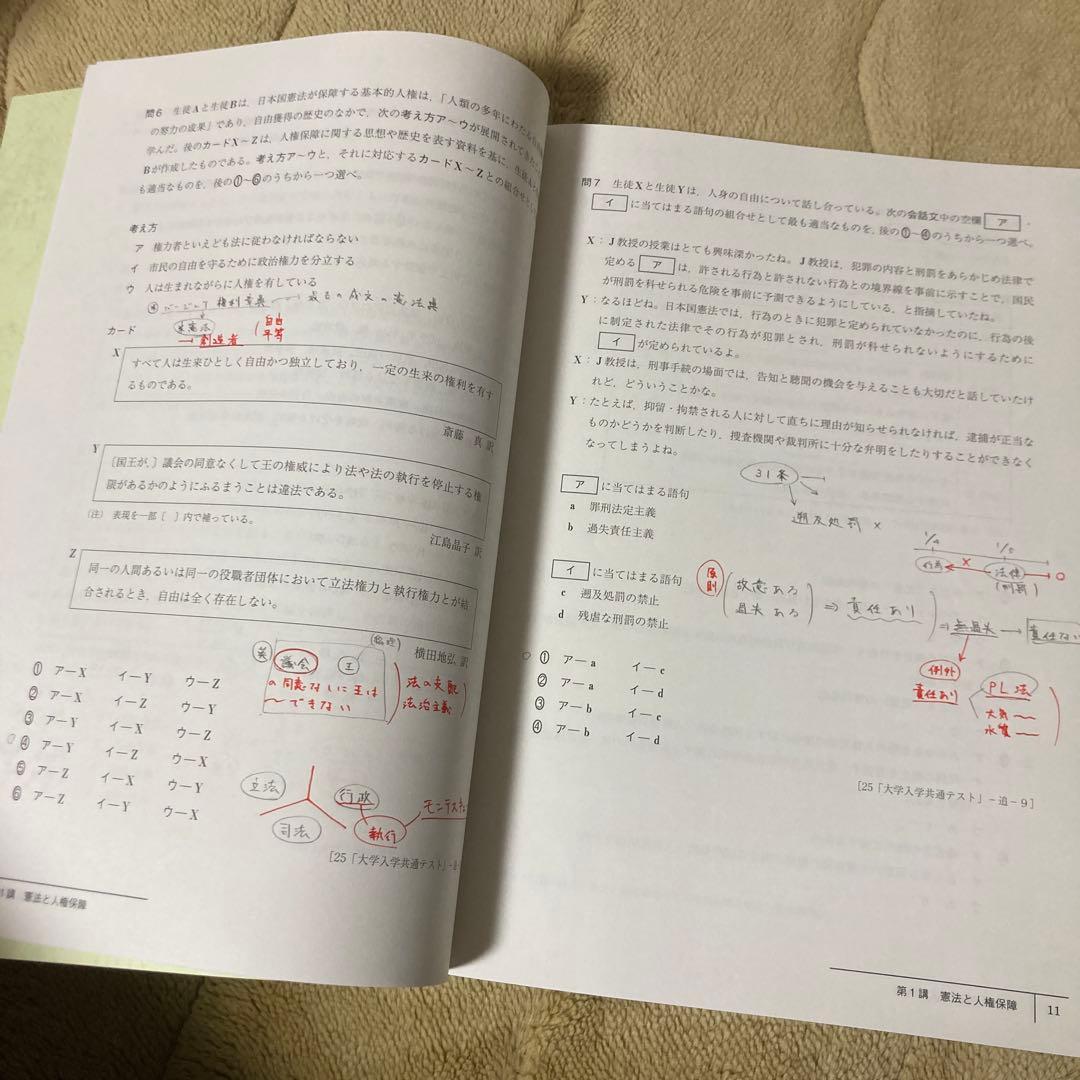 問6 生徒Aと生徒Bは、日本国憲法が保障する基本的人権は、「人類の多年にわたる
の努力の成果」であり、自由獲得の歴史のなかで、次の考え方ア～ウが展開されてきたこ
学んだ。後のカードX～Zは、人権保障に関する思想や歴史を表す資料を基に、生徒Aと
Bが作成したものである。考え方ア～ウと、それに対応するカードX～Zとの組合せとし
も適当なものを、後の①～⑥のうちから一つ選べ。
考え方
ア 権力者といえども法に従わなければならない
イ 市民の自由を守るために政治権力を分立する
ウ 人は生まれながらに人権を有している
権利章典
最古の成文の憲法典
→ 創造者
自由
平等
カード
X
すべて人は生来ひとしく自由かつ独立しており、一定の生来の権利を有す
るものである。
斎藤 真 訳
Y
〔国王が、〕議会の同意なくして王の権威により法や法の執行を停止する権
限があるかのようにふるまうことは違法である。
(注) 表現を一部〔 〕内で補っている。
江島晶子 訳
Z
同一の人間あるいは同一の役職者団体において立法権力と執行権力とが結
合されるとき、自由は全く存在しない。
横田地弘 訳
英 議会 王
の同意なしに王は
～できない
法の支配
法治主義
① ア－X イ－Y ウ－Z
② ア－X イ－Z ウ－Y
③ ア－Y イ－X ウ－Z
④ ア－Y イ－Z ウ－X
⑤ ア－Z イ－X ウ－Y
⑥ ア－Z イ－Y ウ－X
立法 行政
司法 執行
モンテスキ
[25「大学入学共通テスト」－追－9
1講 憲法と人権保障
問7 生徒Xと生徒Yは、人身の自由について話し合っている。次の会話文中の空欄 ア ・
イ に当てはまる語句の組合せとして最も適当なものを、後の①～④のうちから一つ選べ。
X：J教授の授業はとても興味深かったね。J教授は、犯罪の内容と刑罰をあらかじめ法律で
定める ア は、許される行為と許されない行為との境界線を事前に示すことで、国民
が刑罰を科せられる危険を事前に予測できるようにしている、と指摘していたね。
Y：なるほどね。日本国憲法では、行為のときに犯罪と定められていなかったのに、行為の後
に制定された法律でその行為が犯罪とされ、刑罰が科せられないようにするために
イ が定められているよ。
X：J教授は、刑事手続の場面では、告知と聴聞の機会を与えることも大切だと話していたけ
れど、どういうことかな。
Y：たとえば、抑留・拘禁される人に対して直ちに理由が知らせられなければ、逮捕が正当な
ものかどうかを判断したり、捜査機関や裁判所に十分な弁明をしたりすることができなく
なってしまうよね。
31条
遡及処罰 ×
ア に当てはまる語句
a 罪刑法定主義
b 過失責任主義
行為 × 法律
(刑罰)
イ に当てはまる語句
c 遡及処罰の禁止
d 残虐な刑罰の禁止
原則
故意ある
過失ある
⇒ 責任あり
⇒ 無過失 → 責任ない
例外
責任あり
PL法
大気～
水質～
① ア－a イ－c
② ア－a イ－d
③ ア－b イ－c
④ ア－b イ－d
[25「大学入学共通テスト」－追－9]
第1講 憲法と人権保障 11